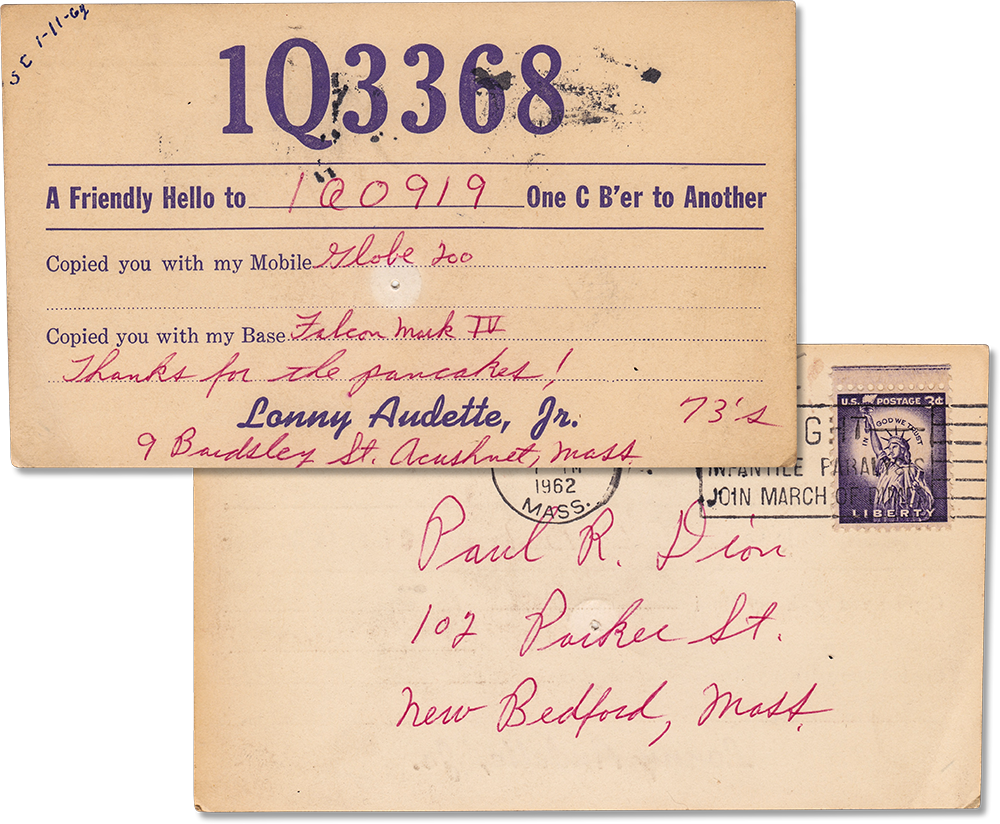 SE 1-11-62
1Q3368
A Friendly Hello to 1Q0919 One C B'er to Another
Copied you with my Mobile Globe 200
Copied you with my Base Falcon Mark IV
Thanks for the pancakes!
Lonny Audette, Jr. 73's
9 Bardsley St. Acushnet, Mass
1962
MASS.
INFANTILE
JOIN MARCH OF
U.S. POSTAGE 3¢
IN GOD WE TRUST
LIBERTY
Paul R. Dion
102 Parker St.
New Bedford, Mass.